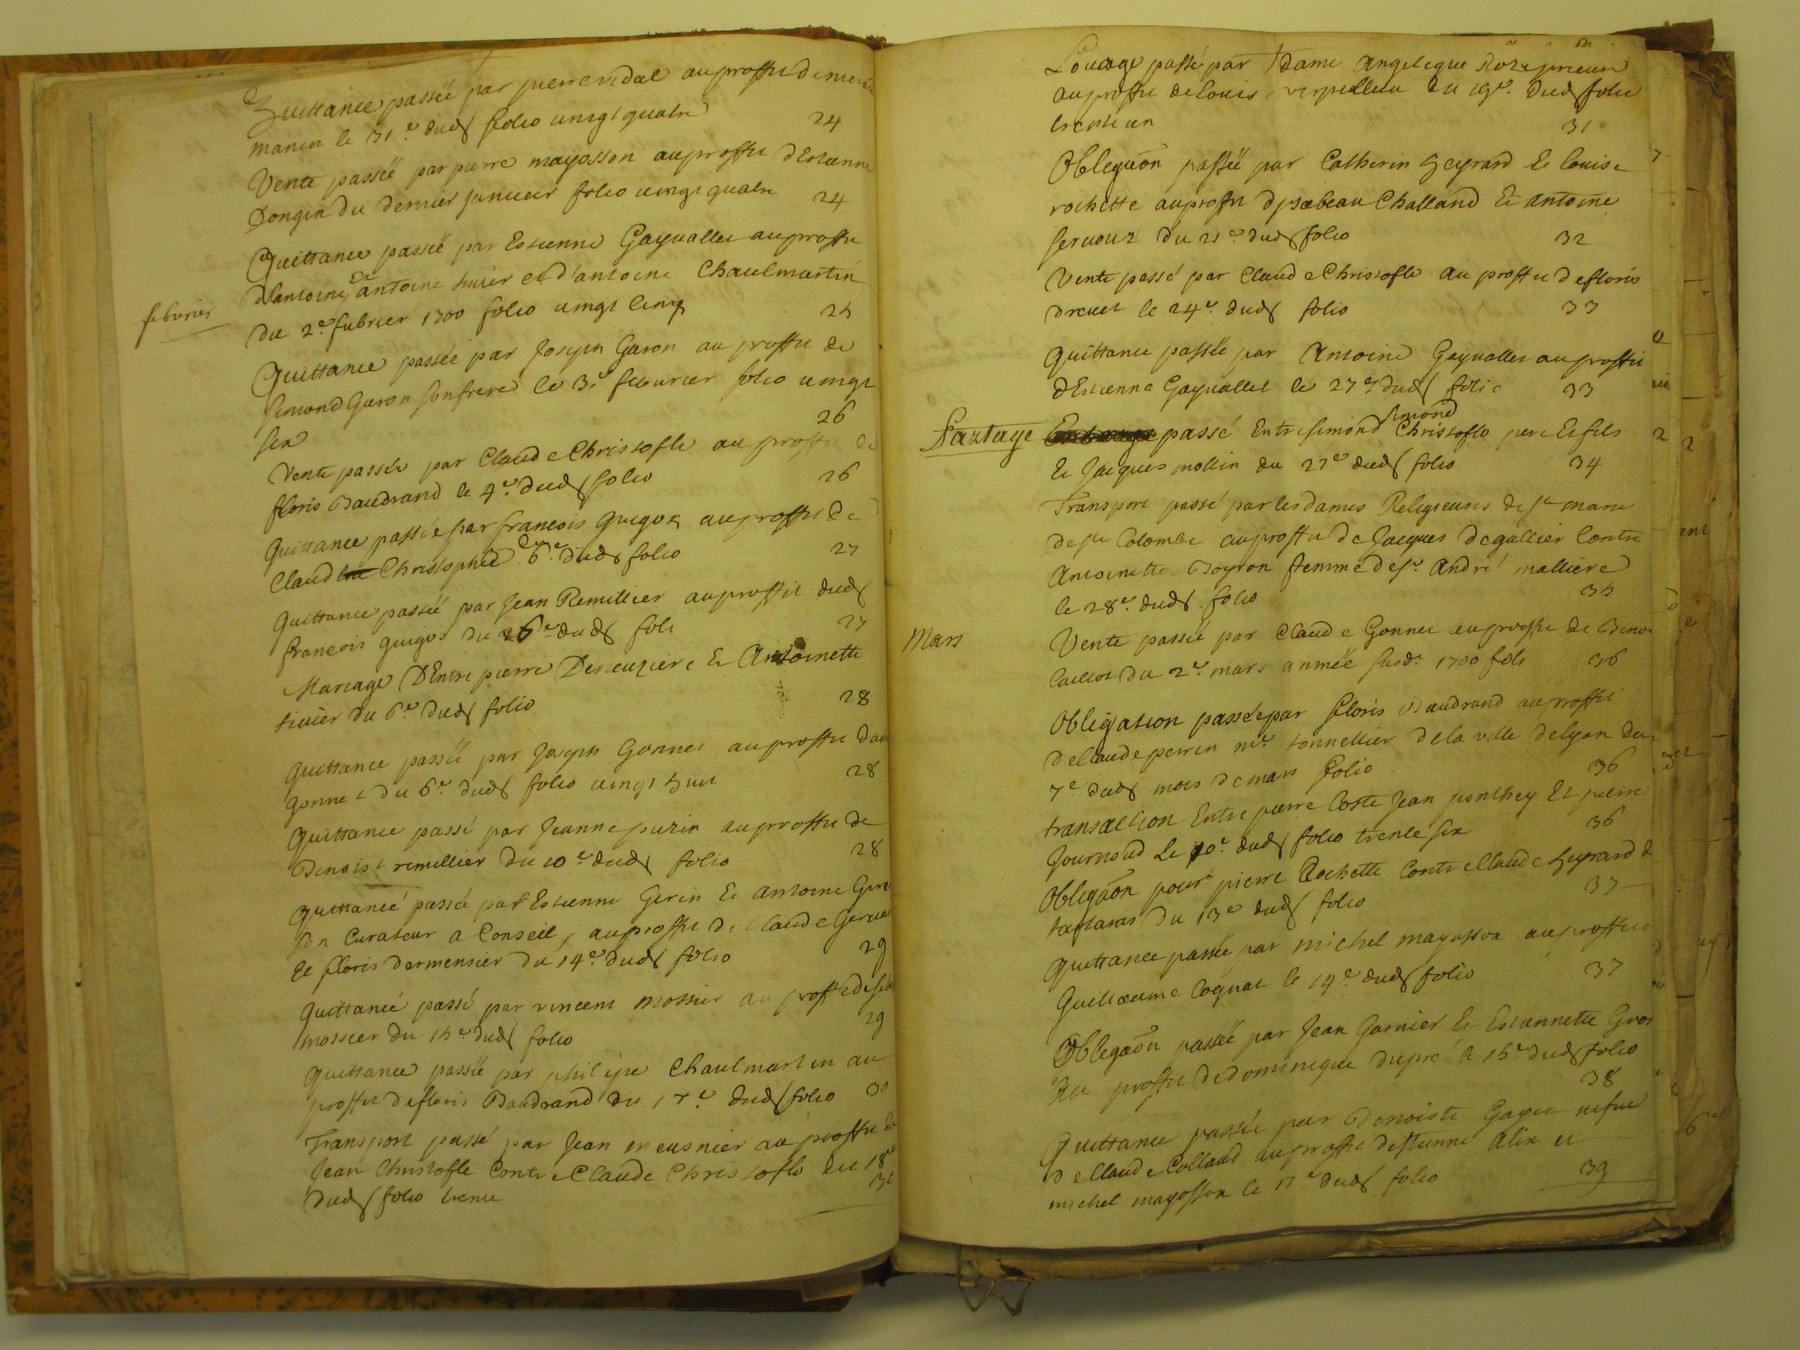 Quittance passée par pierre vidal au proffit de
manin le 31e. dud folio vingt quatre 24
Vente passée par pierre mayosson au proffit d'Estienne
Dongin du dernier Janvier folio vingt quatre 24
Quittance passée par Estienne Gayvallet au proffit
febvrier
d'antoine, Et antoine et d'antoine Chaulmartin
du 2e febvrier 1700 folio vingt cinq 25
Quittance passée par Joseph Garon au proffit de
Simond Garon son frere le 3e febvrier folio vingt
six 26
Vente passée par Claude Christofle au proffit de
floris Baudrand le 4e. dud folio 26
Quittance passée par francois guigot au proffit de
Claud Christophle du 6e. dud folio 27
Quittance passée par Jean Remillier au proffit dud
francois guigot du 6e dud foli 27
Mariage D'Entre pierre Et Antoinette
tivier du 6e dud folio 28
Quittance passée par Joseph Gonnet au proffit
gonnet du 6e. dud folio vingt huit 28
Quittance passé par Jeanne puzin au proffit de
Benoist remillier du 10e dud folio 28
Quittance passée par Estienne Gerin Et antoine
son Curateur a Conseil, au proffit de Claude
Et floris dermensier du 14e. dud folio 29
Quittance passé par vincent mossier au proffit de
mossier du 15e dud folio 29
Quittance passée par philipe Chaulmartin au
proffit de floris Baudrand du 17e dud folio 30
Transport passé par Jean au proffit de
Jean Christofle Contre Claude Christofle du 18e
dud folio trente 30
Louage passé par Dame Angelique
au proffit de Louis verpilleu du 19e. dud folio
trente un 31
Obligaōn passée par Catherin heyrard Et louise
rochette au proffit dysabeau Challand Et antoine
servoux du 21e dud folio 32
Vente passé par Claude Christofle au proffit de floris
drevet le 24e. dud folio 33
Quittance passée par Antoine Gayvallet au proffit
d'Estienne Gayvallet le 27e dud folio 33
Partage passé Entre Simond Simond Christofle pere Et fils
Et Jacques mollin du 27e dud folio 34
Transport passé par les dames Religieuses de ste marie
de ste Colombe au proffit de Jacques degallier Contre
Antoinette Boyron femme de sr. André mallière
le 28e. dud folio 35
Mars
Vente passée par Claude Gonnet au proffit de Benoi
Caillot du 2e. mars année susd. 1700 folio 36
Obligation passée par floris Baudrand au proffit
de Claude perrin me. tonnellier de la ville de lyon du
7e dud mois de mars folio 36
transaction Entre pierre Coste Jean ponthey Et pierre
Journoud Le 10e. dud folio trente six 36
Obligaōn pour pierre Rochette Contre Claude heyrard
du 13e dud folio 37
Quittance passée par michel mayosson au proffit
Guillaume Coquat le 14e dud folio 37
Obligaōn passée par Jean Garnier Et Estiennette
Au proffit de dominique dupré le 15e dud folio
38
Quittance passée par Benoiste Gaget vefve
de Claude Colland au proffit d'Estienne alix et
michel mayosson le 17e dud folio 39